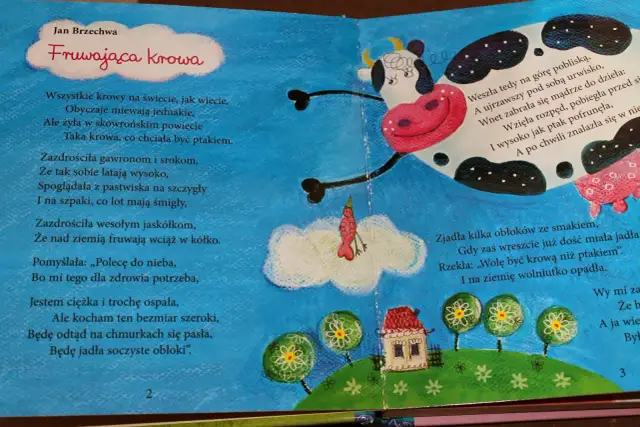 Jan Brzechwa
Fruwająca krowa
Wszystkie krowy na świecie, jak wiecie,
Obyczaje miewają jednakie,
Ale żyła w skowrońskim powiecie
Taka krowa, co chciała być ptakiem.
Zazdrościła gawronom i srokom,
Że tak sobie latają wysoko,
Spoglądała z pastwiska na szczygły
I na szpaki, co lot mają śmigły,
Zazdrościła wesołym jaskółkom,
Że nad ziemią fruwają wciąż w kółko.
Pomyślała: „Polecę do nieba,
Bo mi tego dla zdrowia potrzeba,
Jestem ciężka i trochę ospała,
Ale kocham ten bezmiar szeroki,
Będę odtąd na chmurkach się pasła,
Będę jadła soczyste obłoki”.
2
Weszła tedy na górę pobliską,
A ujrzawszy pod sobą urwisko,
Wnet zabrała się mądrze do dzieła:
Wzięła rozpęd, pobiegła przed
I wysoko jak ptak pofrunęła,
A po chwili znalazła się w
Zjadła kilka obłoków ze smakiem,
Gdy zaś wreszcie już dość miała jadła
Rzekła: „Wolę być krową niż ptakiem”
I na ziemię wolniutko opadła.
Wy mi
Że
A ja
3